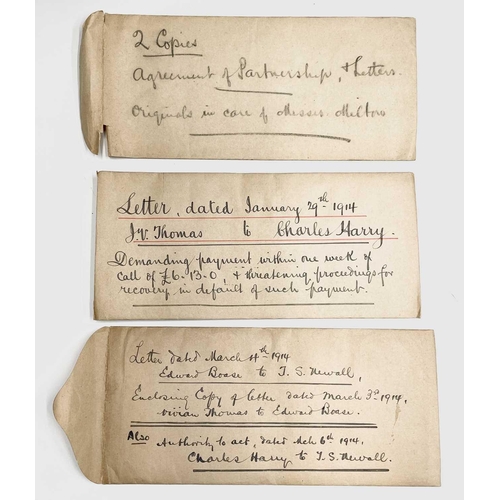 2 Copies
Agreement of Partnership, & Letters.
Originals in care of Messrs. Miltons
Letter, dated January 29th 1914
J.V. Thomas to Charles Harry.
Demanding payment within one week of
call of £6-13-0, & threatening proceedings for
recovery in default of such payment.
Letter dated March 4th 1914
Edward Boase to T. S. Newall,
Enclosing Copy of letter dated March 3rd 1914,
Vivian Thomas to Edward Boase.
Also Authority to act, dated Mch 6th 1914,
Charles Harry to T. S. Newall.